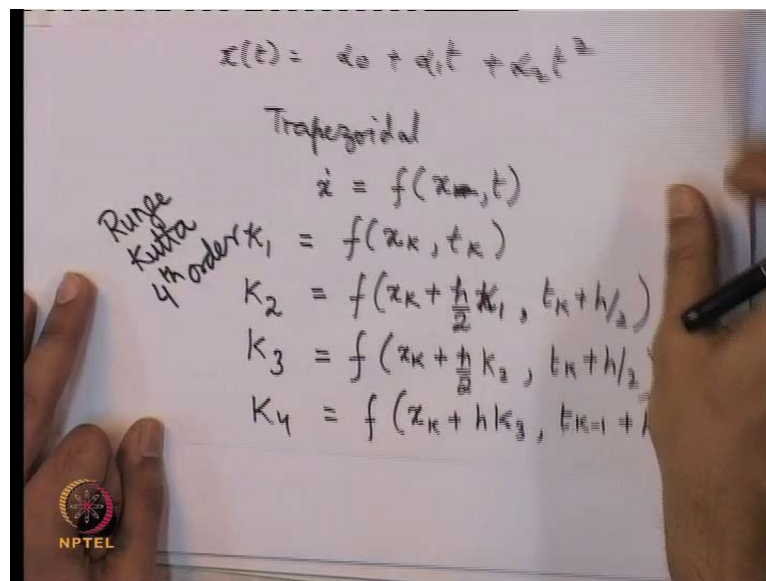 x(t) = α0 + α1t + α2t²
Trapezoidal
ẋ = f(x, t)
Runge
Kutta
4th order
K1 = f(xK, tK)
K2 = f(xK + h/2 K1, tK + h/2)
K3 = f(xK + h/2 K2, tK + h/2
K4 = f(xK + hK3, tK-1 + h
NPTEL